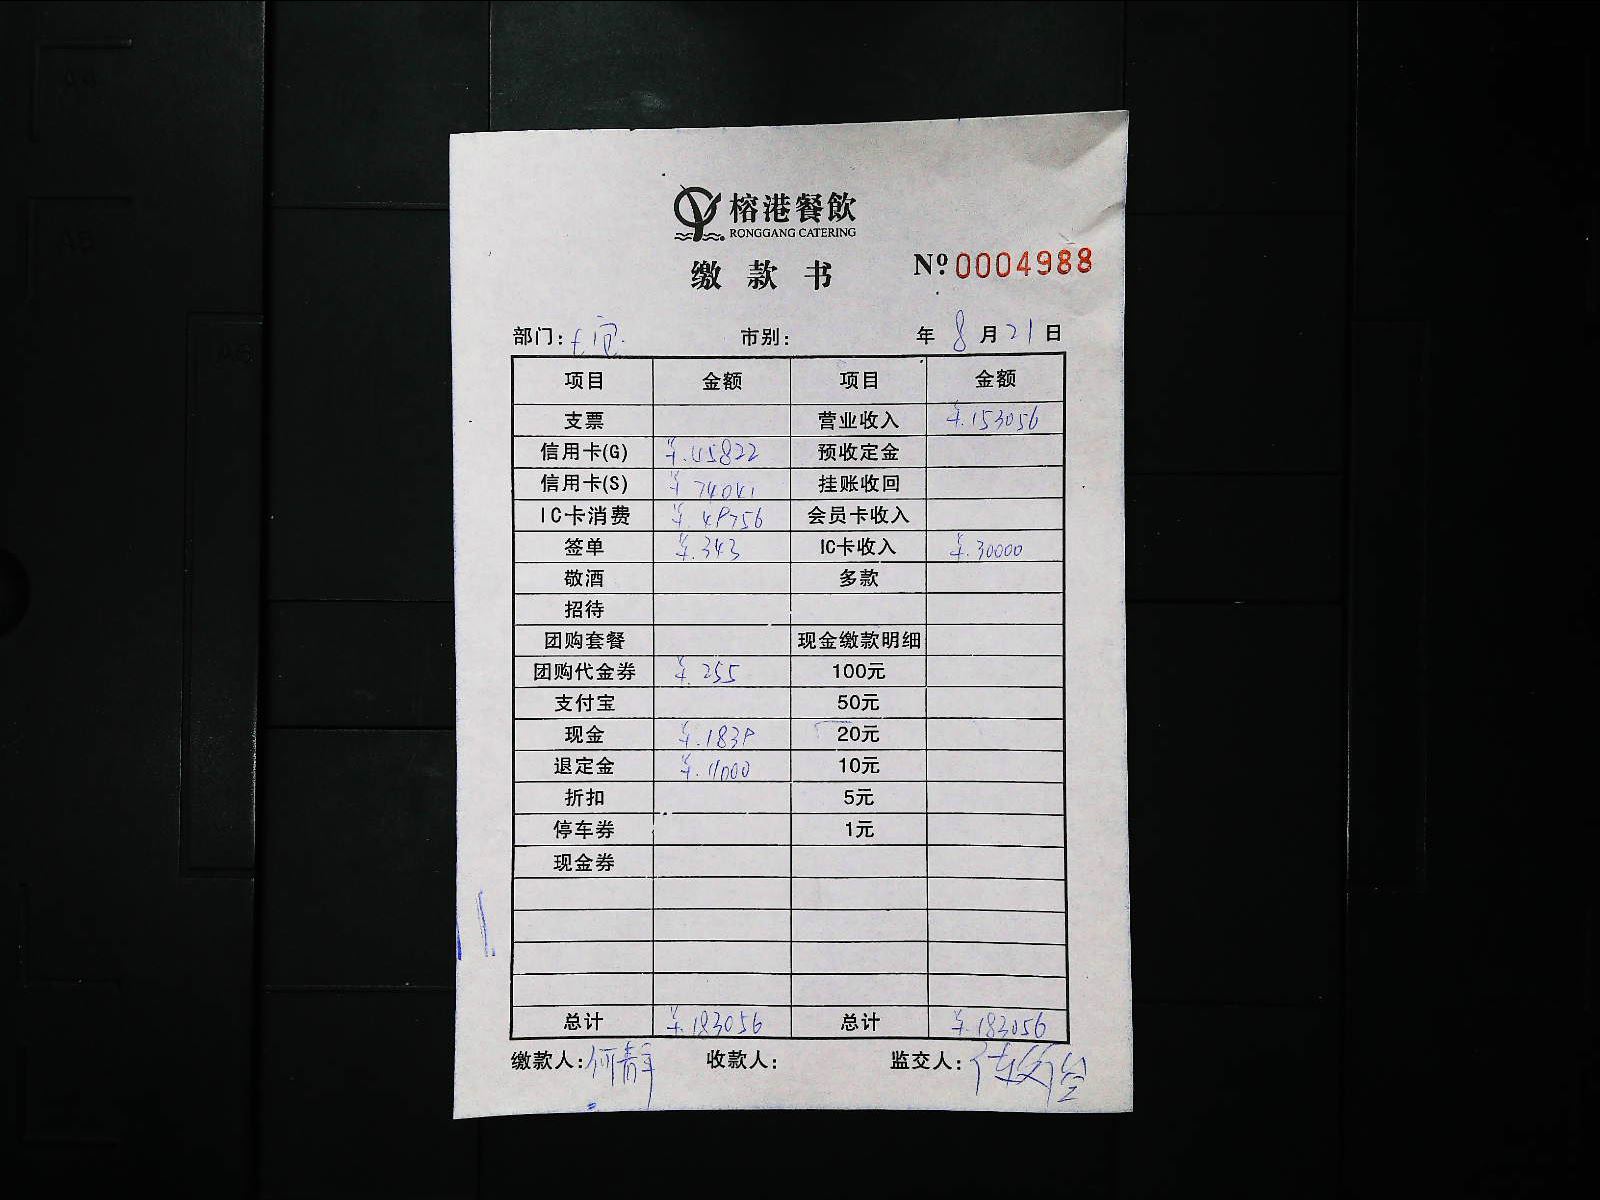 榕港餐飲
RONGGANG CATERING
缴款书 Nº 0004988
部门: 市别: 年 8 月 21 日
项目 金额 项目 金额
支票 营业收入 ¥.153056
信用卡(G) ¥.45822 预收定金
信用卡(S) ¥ 74041 挂账收回
IC卡消费 ¥.49756 会员卡收入
签单 ¥.343 IC卡收入 ¥.30000
敬酒 多款
招待
团购套餐 现金缴款明细
团购代金券 ¥.255 100元
支付宝 50元
现金 ¥.1839 20元
退定金 ¥.11000 10元
折扣 5元
停车券 1元
现金券
总计 ¥.183056 总计 ¥.183056
缴款人:何静 收款人: 监交人: